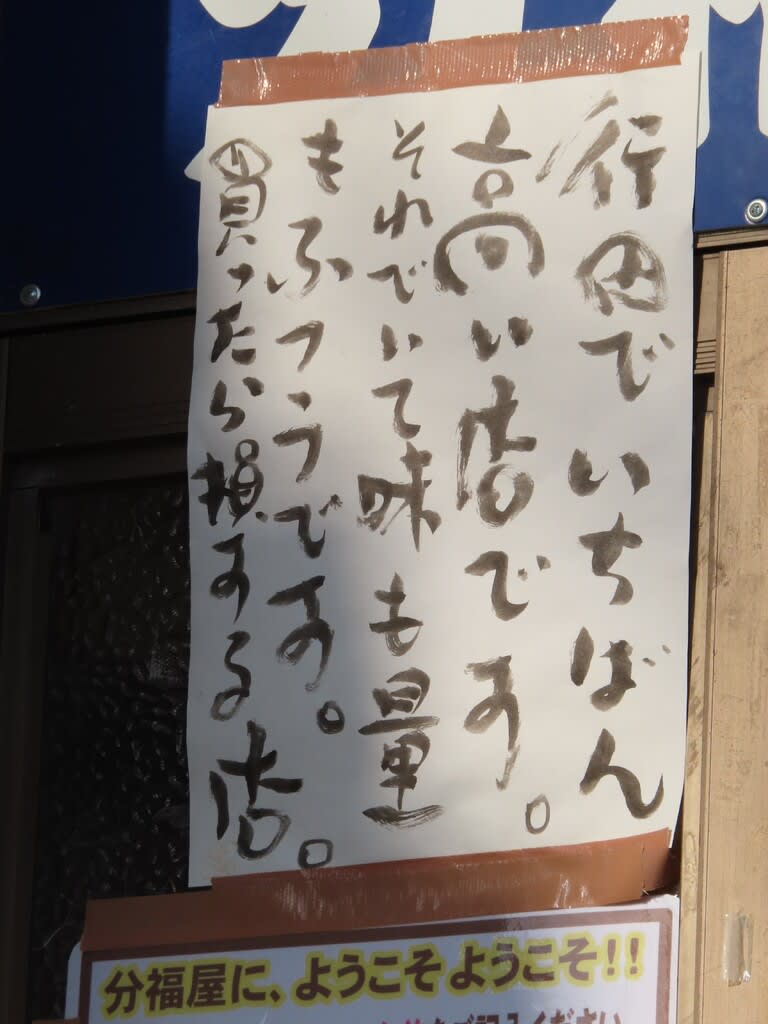 行田でいちばん
高い店です。
それでいて味も量
もふつうです。
買ったら損する店。
分福屋に、ようこそようこそ!!
ご記入ください